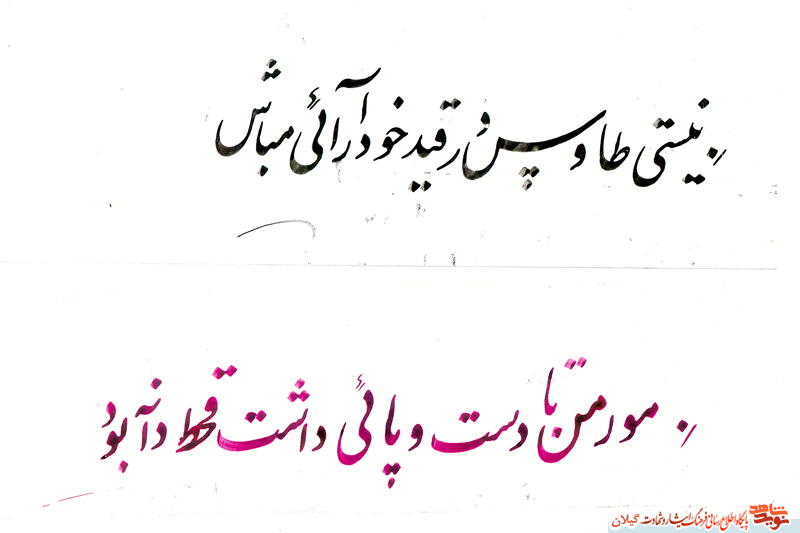 نیستی طاوس در قید خودآرائی مباش
مور من تا دست و پائی داشت قحط دانه بود
نوید شاهد
پایگاه اطلاع رسانی فرهنگ ایثار و شهادت گیلان